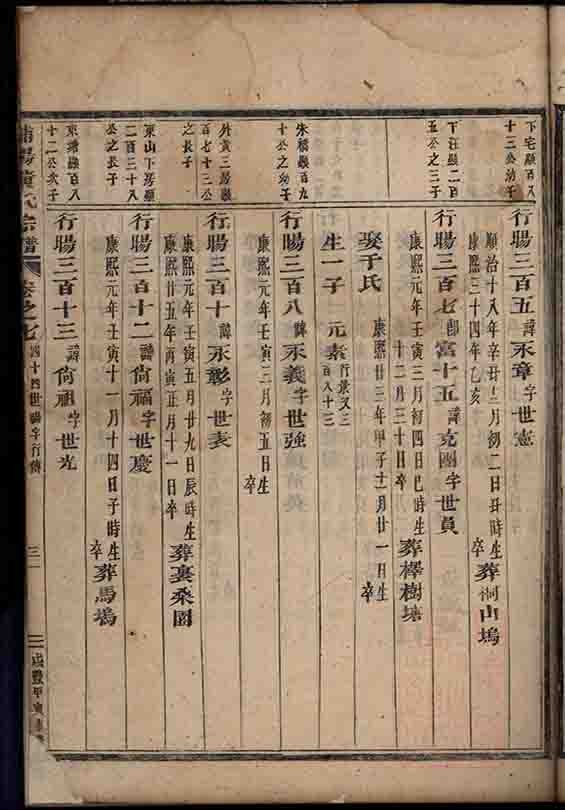 下宅顯百八
十三公幼子
行賜三百五 諱永章字世憲
順治十八年辛丑三月初二日丑時生
康熙三十四年乙亥 卒 葬 山塢
下汪顯二百
五公之三子
行賜三百七 即富十五 諱克團字世員
康熙元年壬寅三月初四日巳時生
十二月三十日卒 葬櫸樹
娶于氏 康熙廿三年甲子十二月廿一日生 卒
生一子 元素 行景又三百八十三
朱橋顯百九
十公之幼子
行賜三百八 諱永義字世強
康熙元年壬寅三月初五日生
卒
外黃三房顯
百七十三公
之長子
行賜三百十 諱永彰字世表
康熙元年壬寅五月廿九日辰時生
康熙廿五年丙寅正月十一日卒 葬裏桑園
東山下房顯
二百三十八
公之長子
行賜三百十二 諱尙福字世慶
康熙元年壬寅十一月十四日子時生
卒 葬馬塢
東塘顯百八
十二公次子
行賜三百十三 諱尙祖字世光
氏宗譜 卷之七 四十四世賜字行傳 三 咸豐甲寅